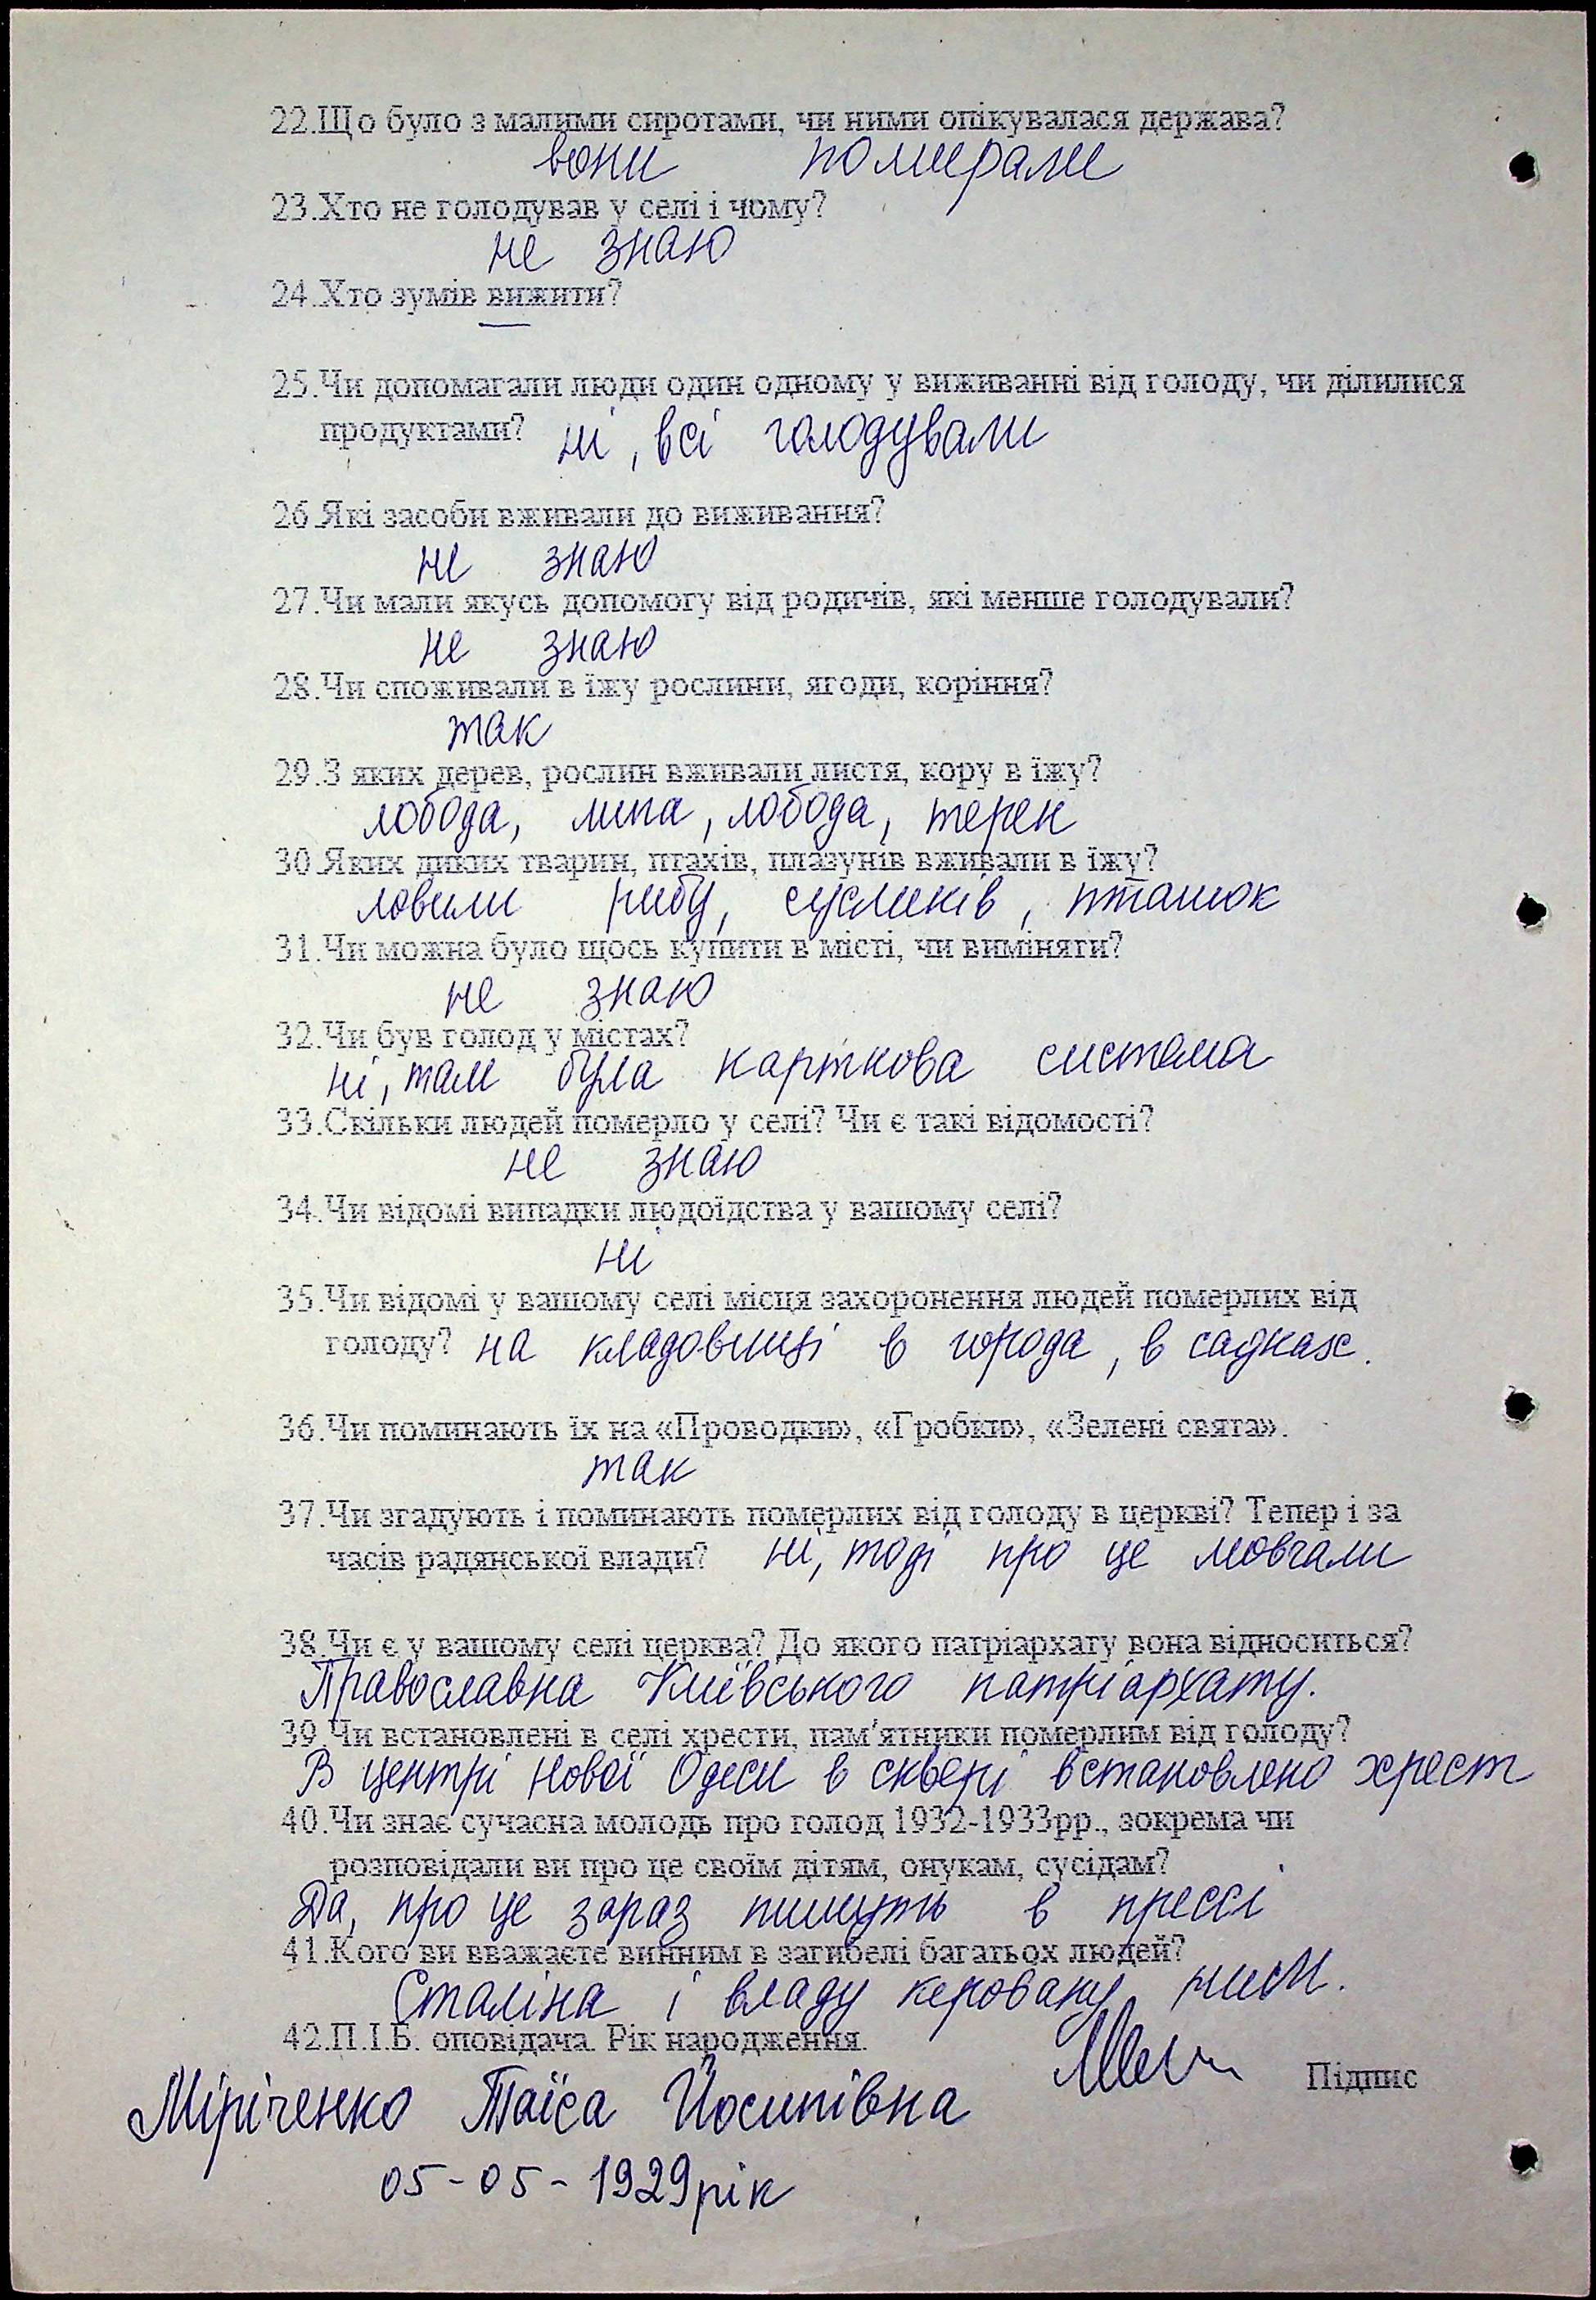 22.Що було з малими сиротами, чи ними опікувалася держава?
вони помирали
23.Хто не голодував у селі і чому?
не знаю
24.Хто зумів вижити?
—
25.Чи допомагали люди один одному у виживанні від голоду, чи ділилися
продуктами? ні, всі голодували
26.Які засоби вживали до виживання?
не знаю
27.Чи мали якусь допомогу від родичів, які менше голодували?
не знаю
28.Чи споживали в їжу рослини, ягоди, коріння?
так
29.З яких дерев, рослин вживали листя, кору в їжу?
лобода, липа, лобода, терен
30.Яких диких тварин, птахів, плазунів вживали в їжу?
ловили рибу, сусликів, пташок
31.Чи можна було щось купити в місті, чи виміняти?
не знаю
32.Чи був голод у містах?
ні, там була карткова система
33.Скільки людей померло у селі? Чи є такі відомості?
не знаю
34.Чи відомі випадки людоїдства у вашому селі?
ні
35.Чи відомі у вашому селі місця захоронення людей померлих від
голоду? на кладовищі в города, в садках.
36.Чи поминають їх на «Проводки», «Гробки», «Зелені свята».
так
37.Чи згадують і поминають померлих від голоду в церкві? Тепер і за
часів радянської влади? ні, тоді про це мовчали
38.Чи є у вашому селі церква? До якого патріархату вона відноситься?
Православна Київського патріархату.
39.Чи встановлені в селі хрести, пам'ятники померлим від голоду?
В центрі Нової Одеси в сквері встановлено хрест
40.Чи знає сучасна молодь про голод 1932-1933рр., зокрема чи
розповідали ви про це своїм дітям, онукам, сусідам?
Да, про це зараз пишуть в прессі
41.Кого ви вважаєте винним в загибелі багатьох людей?
Сталіна і владу керовану ним.
42.П.І.Б. оповідача. Рік народження.
Підпис
Міріченко Таїса Йосипівна
05-05-1929рік